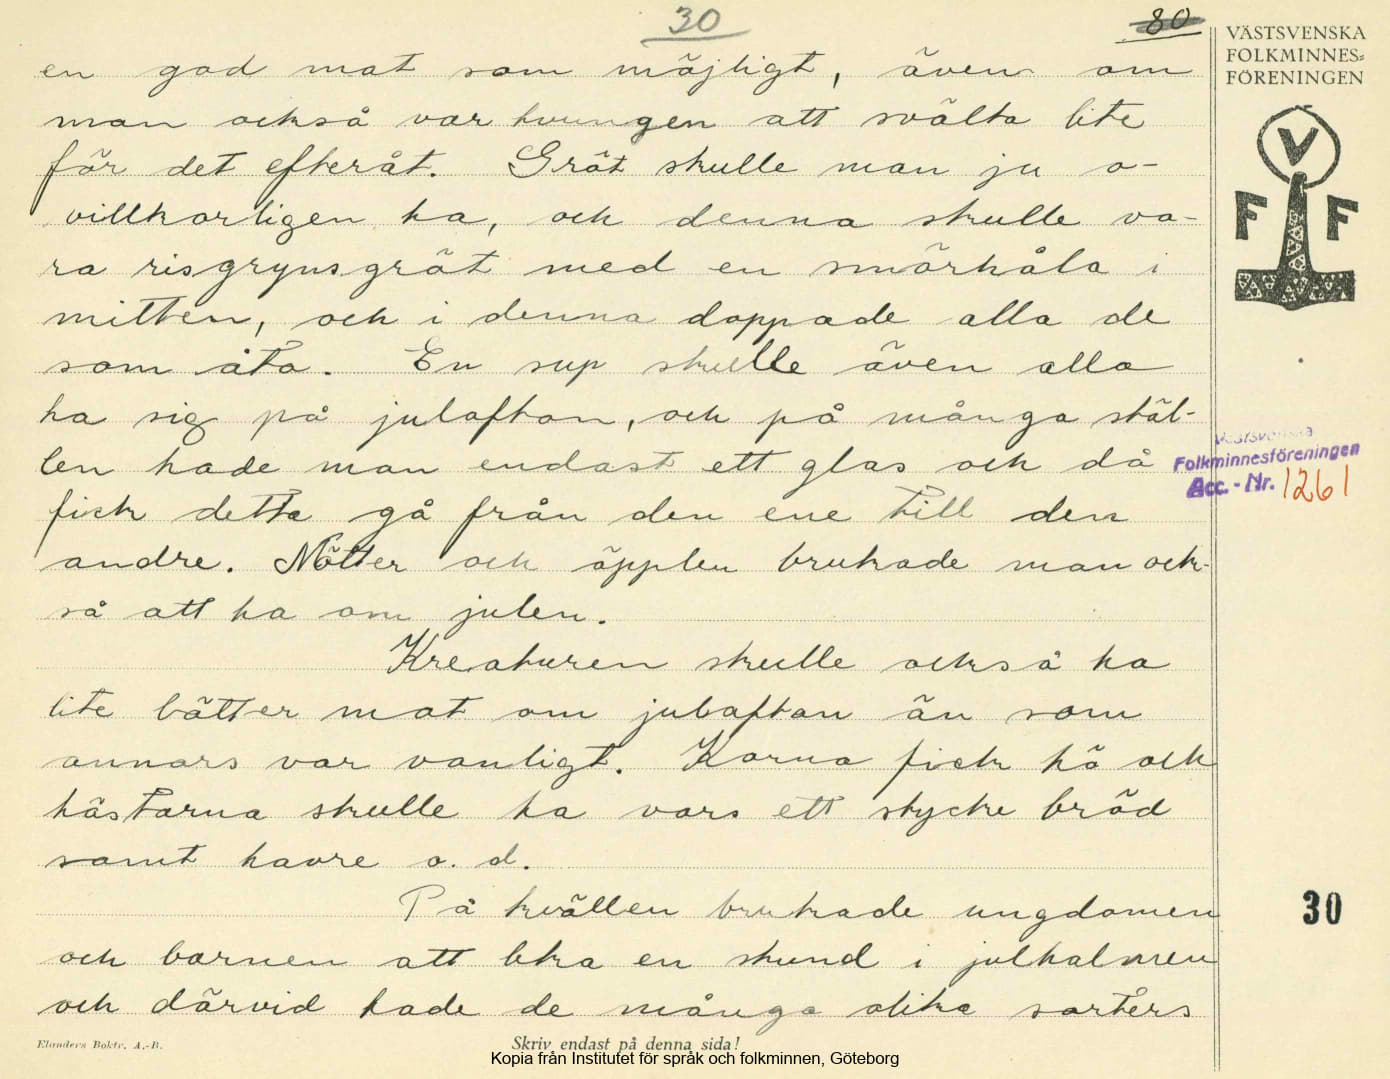 30
80
VÄSTSVENSKA
FOLKMINNES=
FÖRENINGEN
V
F F
en god mat som möjligt, även om
man också var tvungen att svälta lite
för det efteråt. Gröt skulle man ju o-
villkorligen ha, och denna skulle va-
ra risgrynsgröt med en smörhåla i
mitten, och i denna doppade alla de
som åta. En sup skulle även alla
ha sig på julafton, och på många stäl-
len hade man endast ett glas och då
fick detta gå från den ene till den
andre. Nötter och äpplen brukade man ock-
så att ha om julen.
Kreaturen skulle också ha
lite bätter mat om julaftan än som
annars var vanligt. Korna fick hö och
hästarna skulle ha vars ett stycke bröd
samt havre o. d.
På kvällen brukade ungdomen
och barnen att leka en stund i julhalmen
och därvid hade de många olika sorters
Västsvenska
Folkminnesföreningen
Acc. - Nr. 1261
30
Elanders Boktr. A.-B.
Skriv endast på denna sida!
Kopia från Institutet för språk och folkminnen, Göteborg